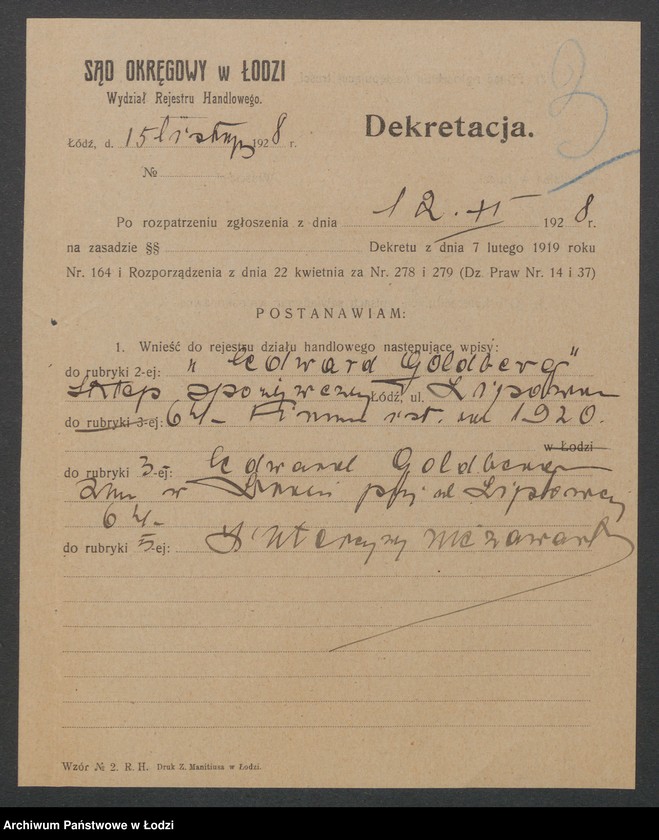 3
SĄD OKRĘGOWY w ŁODZI
Wydział Rejestru Handlowego.
Łódź, d. 15 listop 1928 r.
Dekretacja.
№
Po rozpatrzeniu zgłoszenia z dnia 12.XI 1928 r.
na zasadzie §§ Dekretu z dnia 7 lutego 1919 roku
Nr. 164 i Rozporządzenia z dnia 22 kwietnia za Nr. 278 i 279 (Dz. Praw Nr. 14 i 37)
POSTANAWIAM:
1. Wnieść do rejestru działu handlowego następujące wpisy:
do rubryki 2-ej: „Edward Goldberg"
sklep spożywczy Łódź, ul. Lipowa
do rubryki 3-ej: 64. Firma ist. od 1920.
w Łodzi
do rubryki 3-ej: Edward Goldberg
zam w Łodzi przy ul Lipowej
64.
do rubryki 5-ej: Intercyzy nie zawarł
Wzór № 2. R. H. Druk Z. Manitiusa w Łodzi.
Archiwum Państwowe w Łodzi